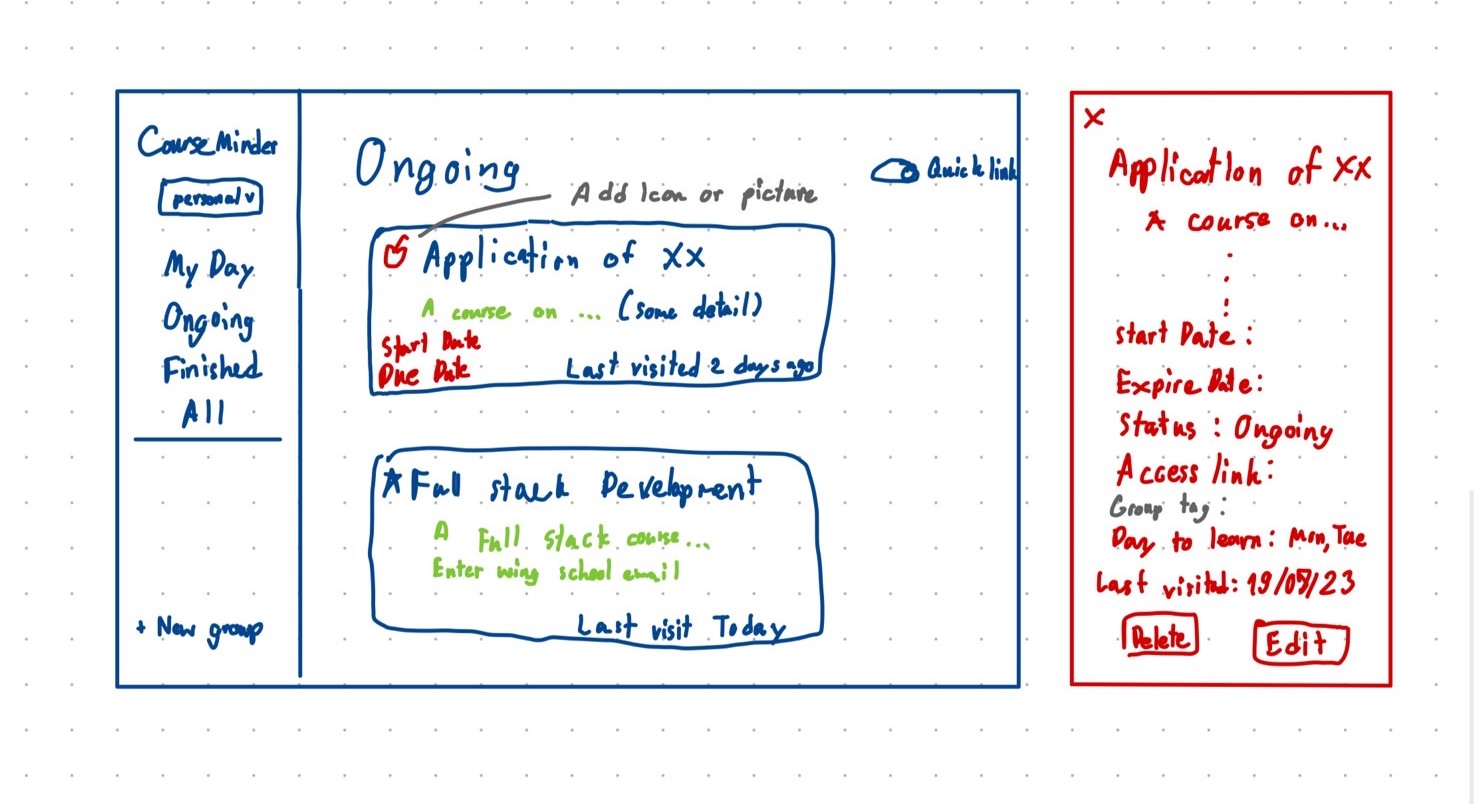 CourseMinder
personal v
My Day
Ongoing
Finished
All
+ New group
Ongoing
Quick link
Add Icon or picture
Application of XX
A course on ... (some detail)
Start Date
Due Date
Last visited 2 days ago
Full stack Development
A Full stack course...
Enter using school email
Last visit Today
X
Application of XX
A course on...
Start Date:
Expire Date:
Status: Ongoing
Access link:
Group tag:
Day to learn: Mon, Tue
Last visited: 19/05/23
Delete
Edit